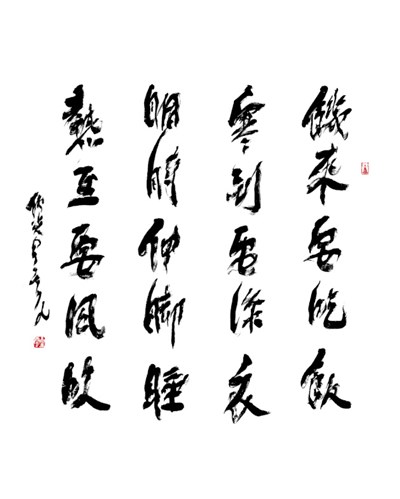 饑來要吃飯
寒到要添衣
睏時伸脚睡
熱至要風吹